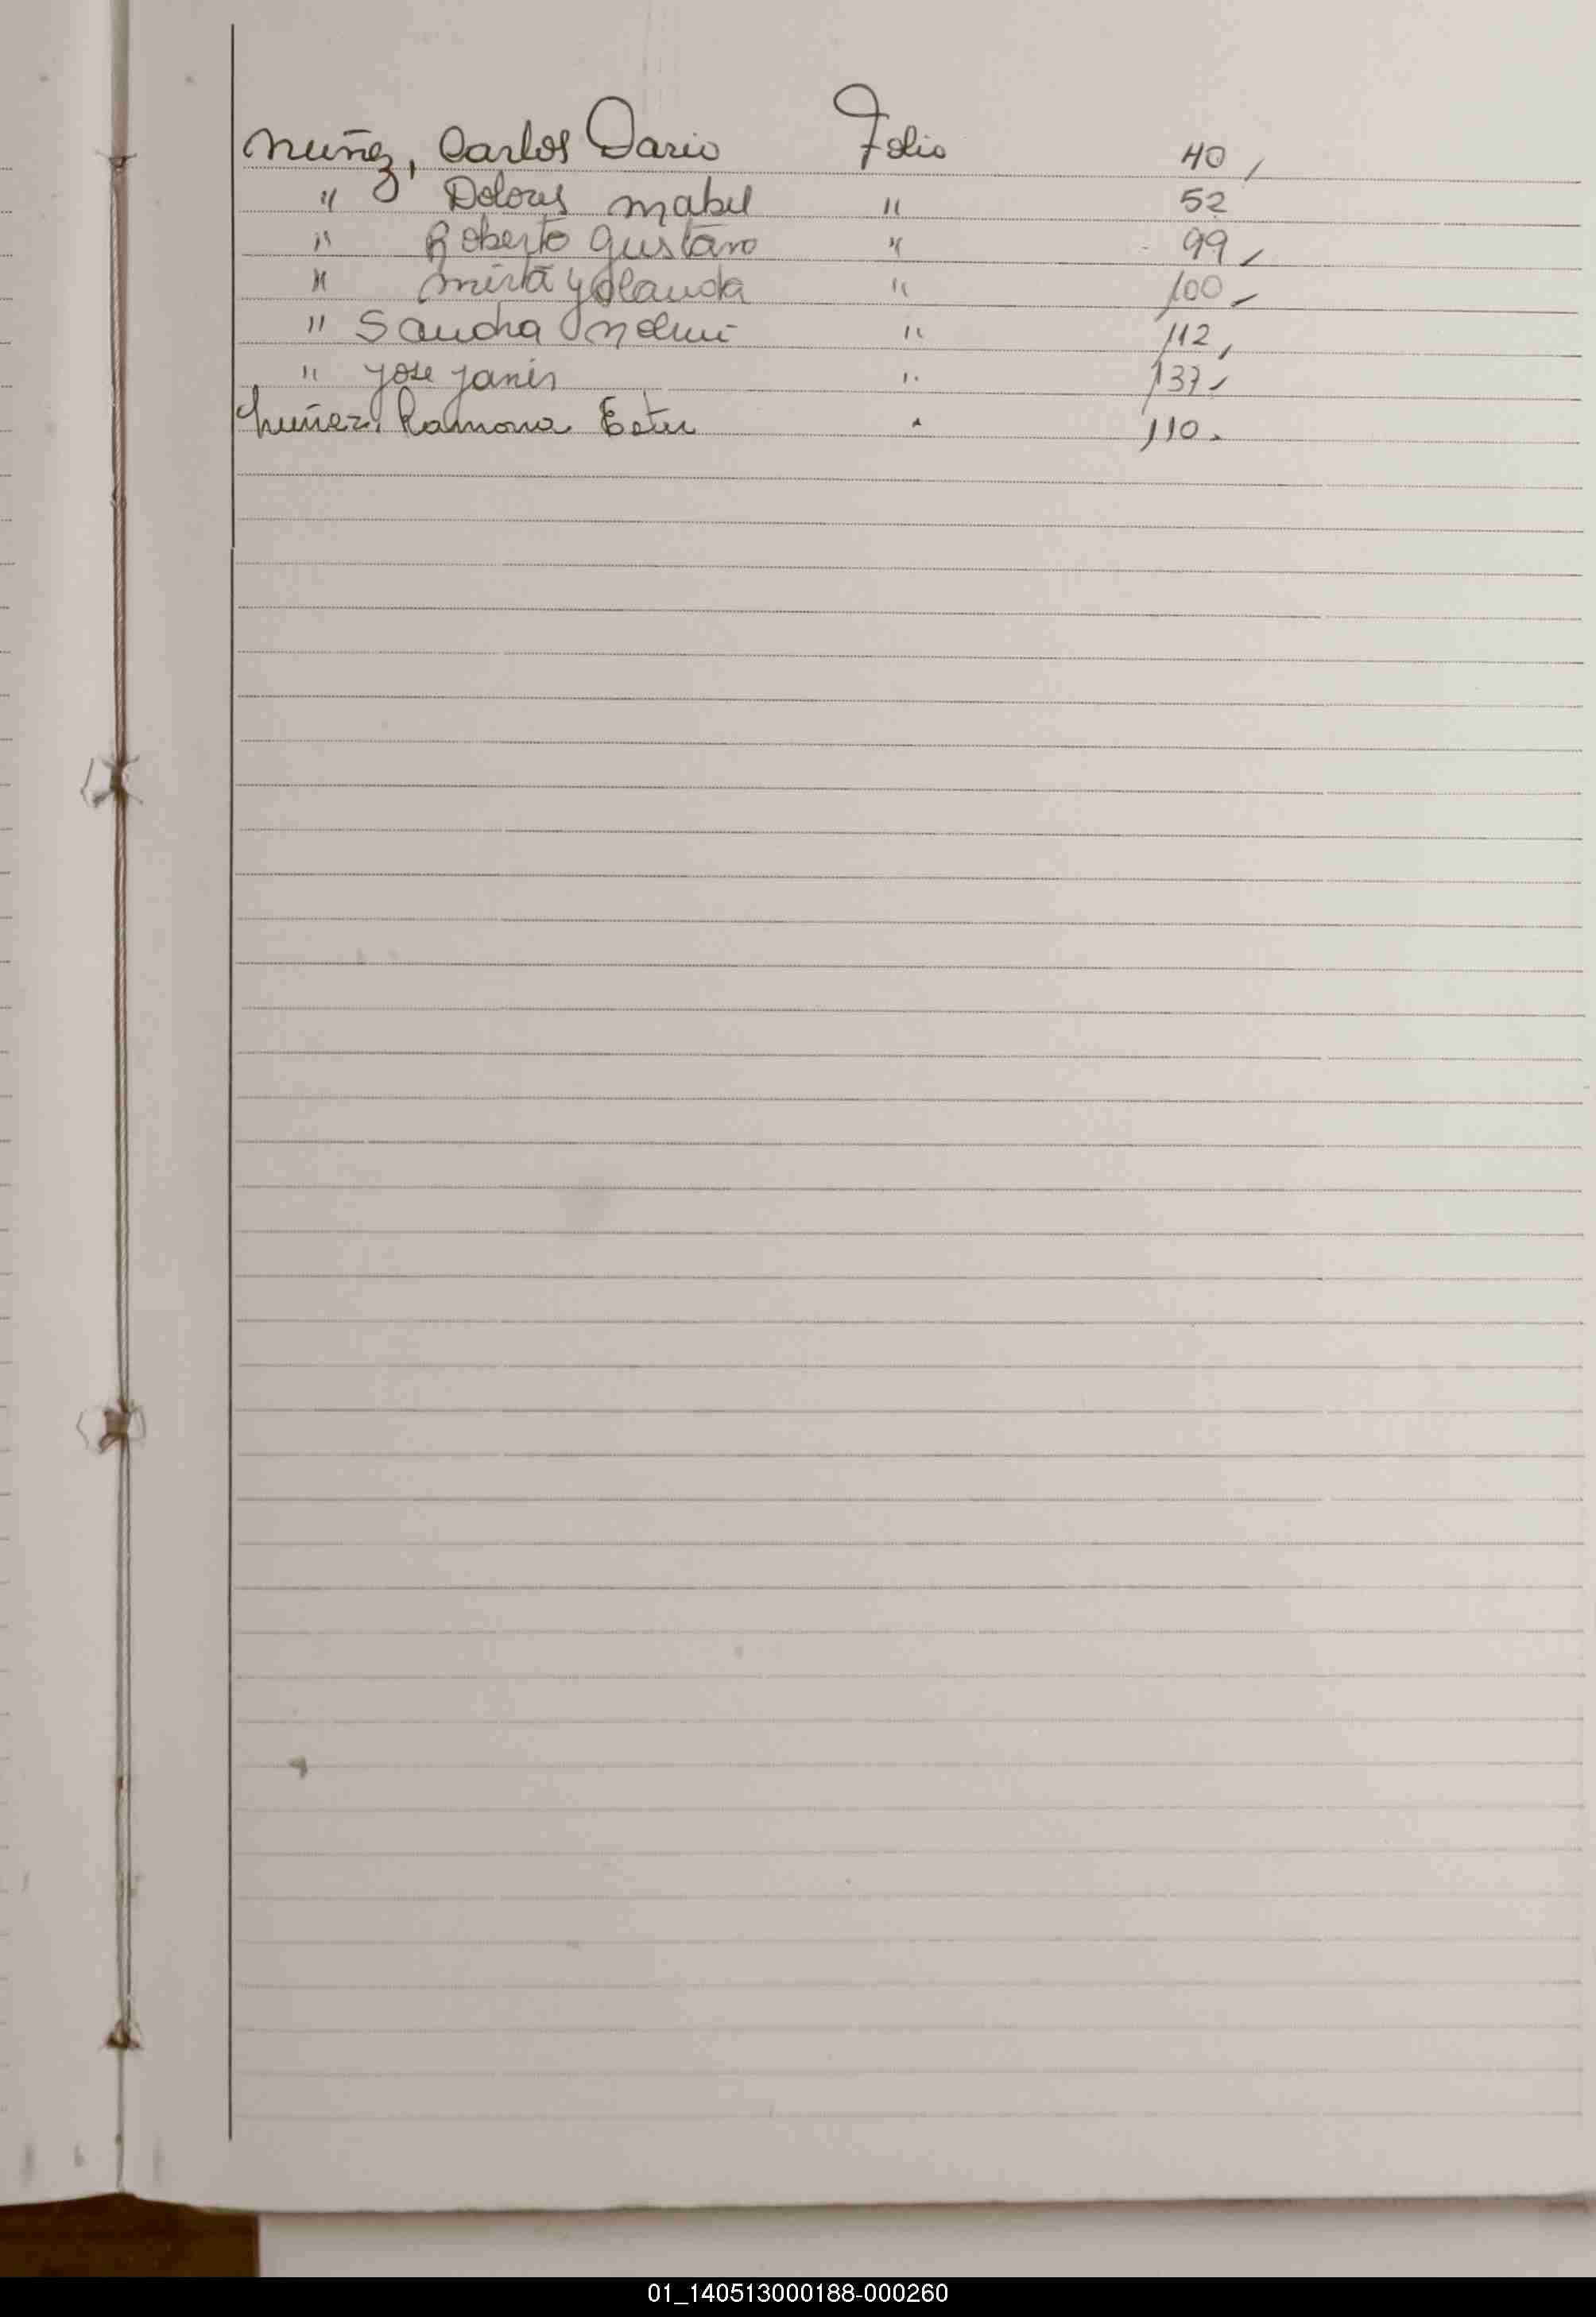 Nuñez, Carlos Dario Folio 40,
" Dolores Mabel " 52
" Roberto Gustavo " 99
" Mirta Yolanda " 100
" Sandra Noemi " 112,
" Jose Javier " 137
Nuñez, Ramona Ester " 110.
01_140513000188-000260